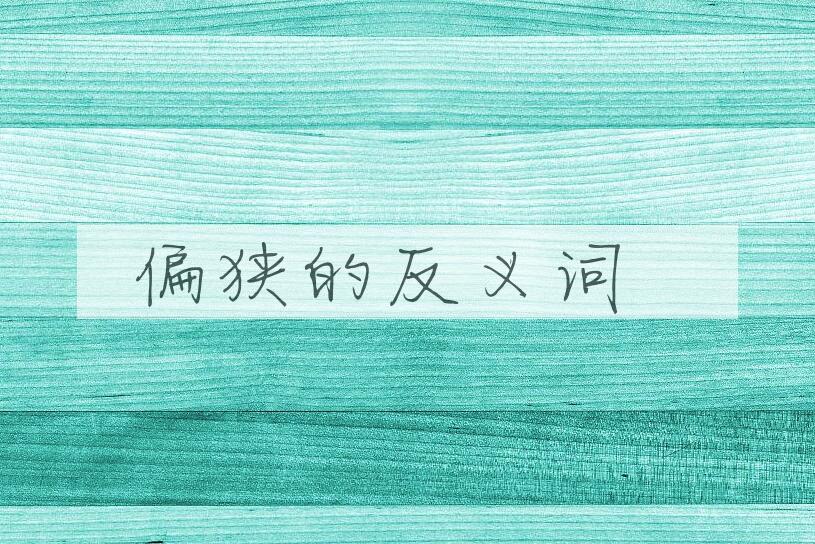 偏狭的反义词